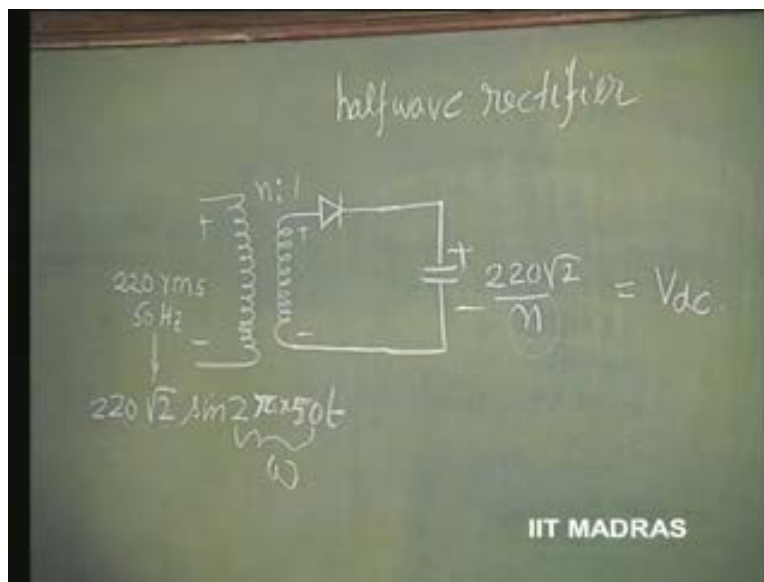 halfwave rectifier
n:1
+
+
220 rms
50 Hz
-
-
+
-
220√2/n = Vdc
220√2 sin 2π×50t
ω
IIT MADRAS